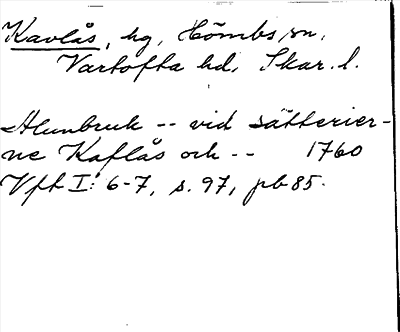 Kavlås, hg, Hömbs sn,
Vartofta hd, Skar. l.
Alunbruk -- vid sätterier-
ne Kaflås och -- 1760
Vft I: 6-7, s. 97, pb 85.